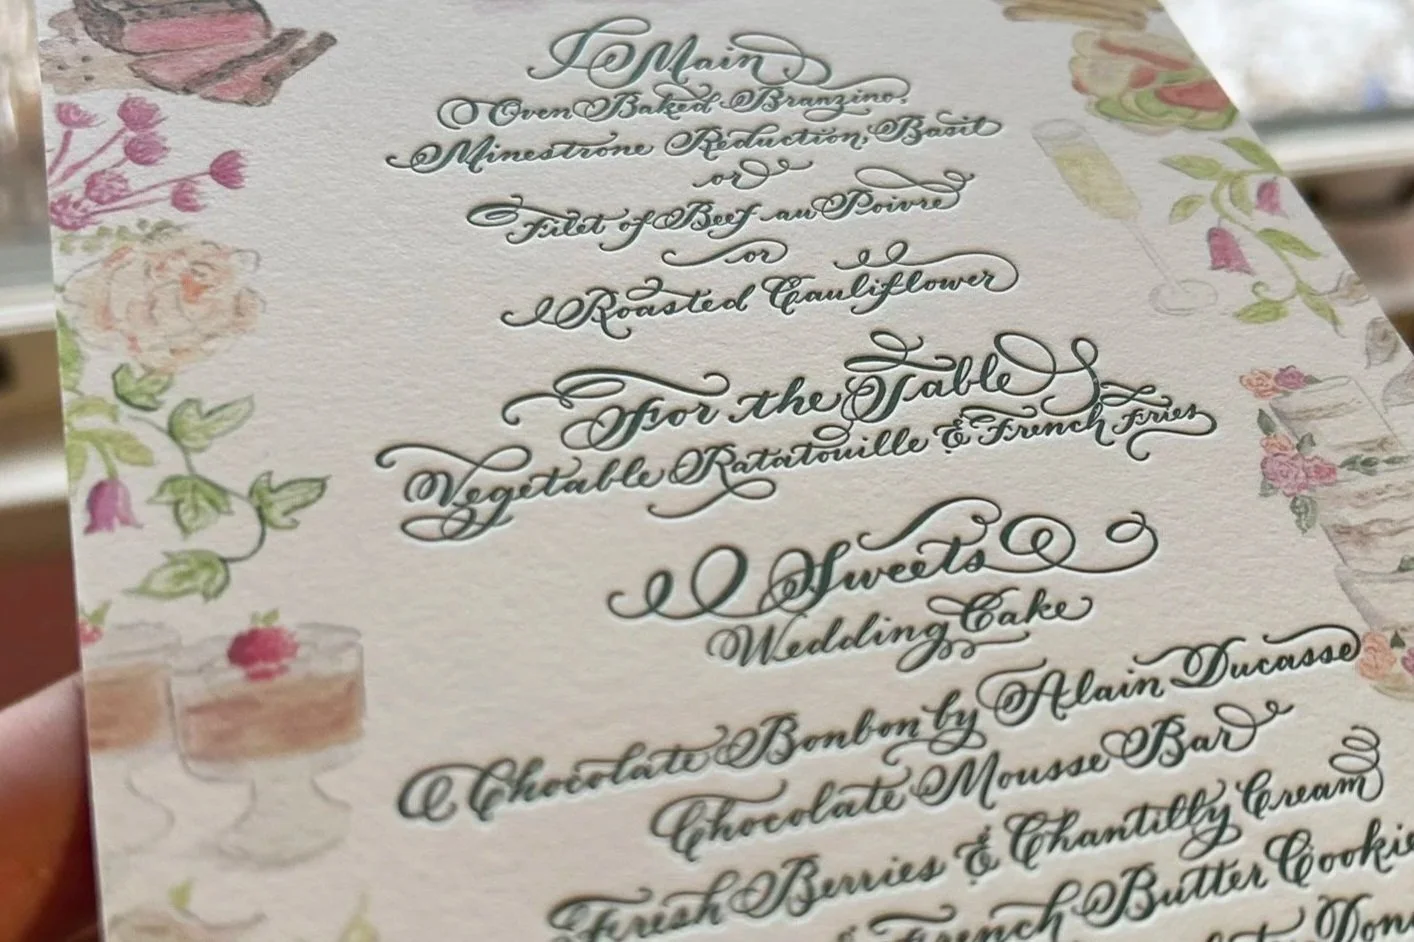 Main
Oven Baked Branzino,
Minestrone Reduction, Basil
or
Filet of Beef au Poivre
or
Roasted Cauliflower
For the Table
Vegetable Ratatouille & French Fries
Sweets
Wedding Cake
Chocolate Bonbon by Alain Ducasse
Chocolate Mousse Bar
Fresh Berries & Chantilly Cream
French Butter Cookie